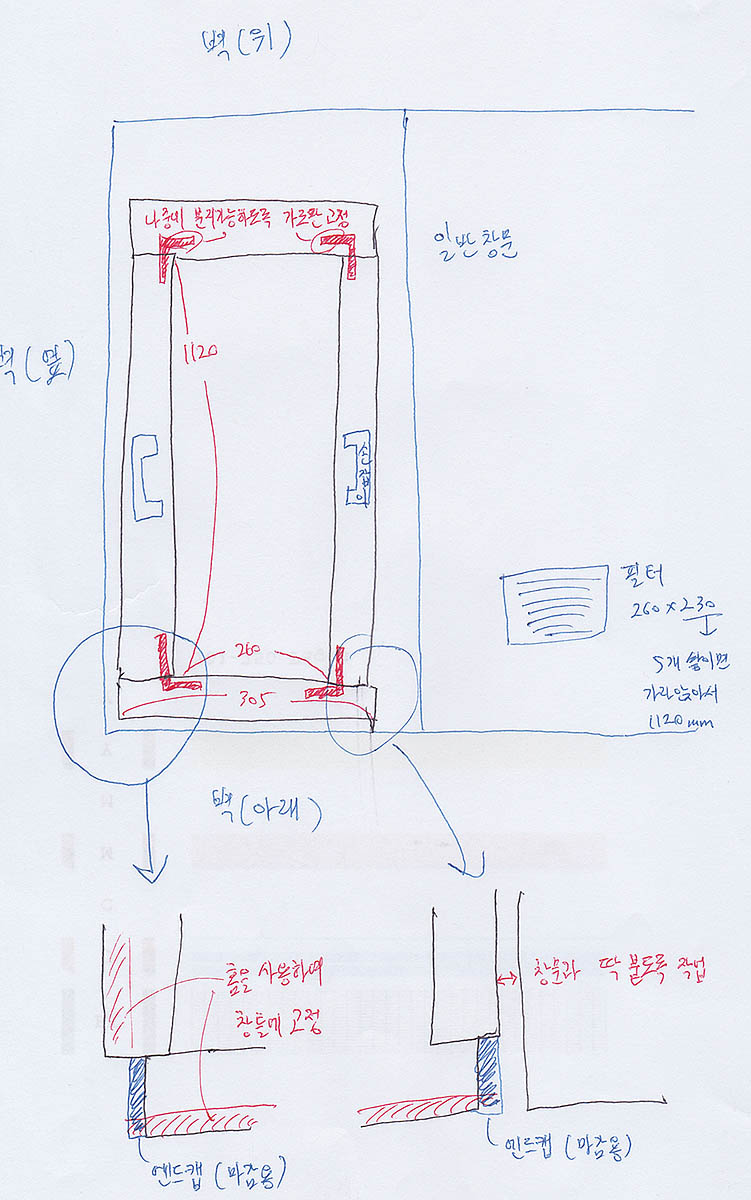 벽(위)
나중에 분리가능하도록 가로판 고정
일반창문
벽(옆)
1120
손잡이
필터
260 × 230
5개 쌓이면
가라앉아서
1120mm
260
305
벽(아래)
홈을 사용하여
창틀에 고정
창문과 딱 붙도록 작업
엔드캡 (마감용)
엔드캡 (마감용)